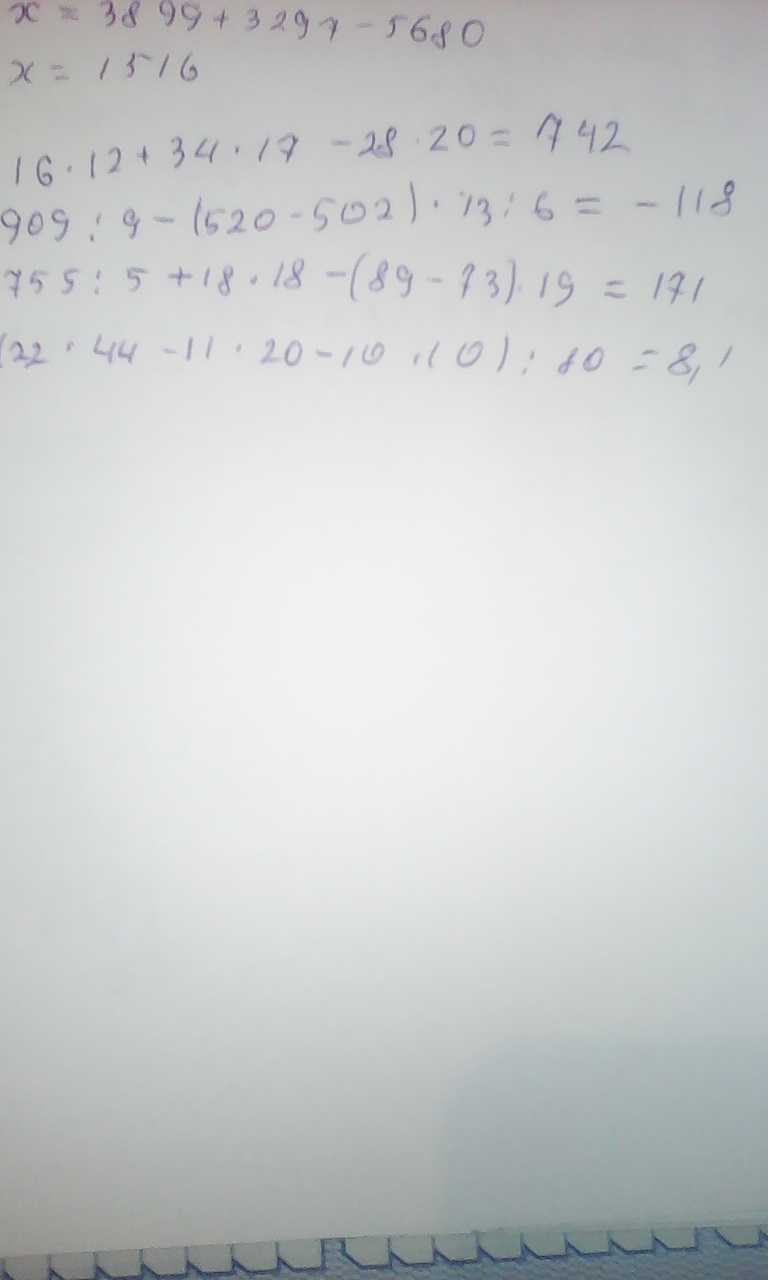 x = 3899 + 3297 - 5680
x = 1516
16 · 12 + 34 · 17 - 28 · 20 = 742
909 : 9 - (520 - 502) · 13 : 6 = - 118
755 : 5 + 18 · 18 - (89 - 73) · 19 = 171
(22 · 44 - 11 · 20 - 10 · 10) : 80 = 8,1